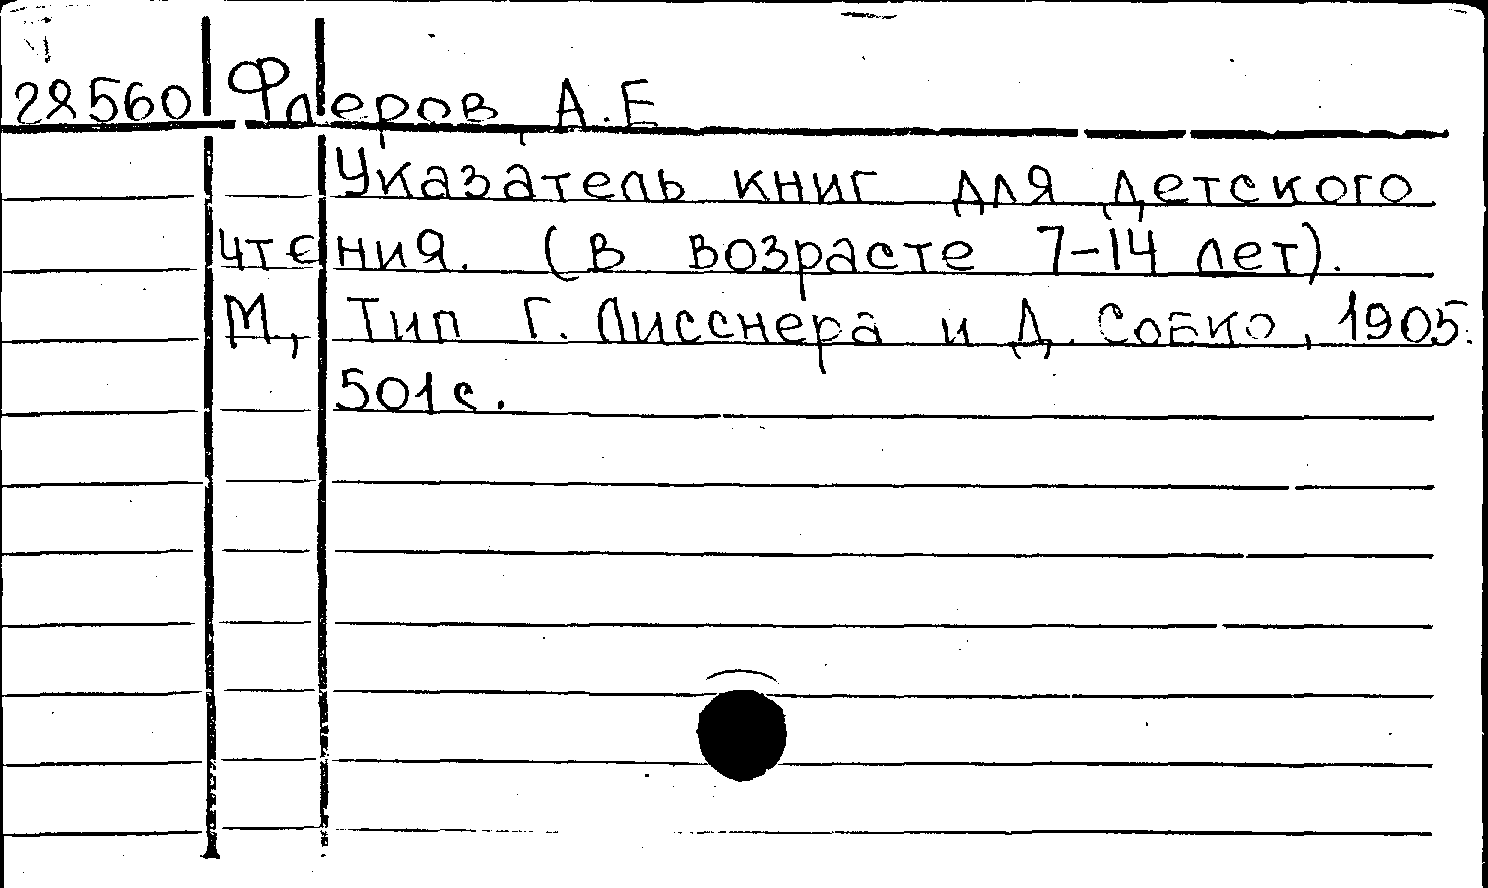 28560 Флеров, А.Е
Указатель книг для детского
чтения. (в возрасте 7-14 лет).
М, Тип Г. Лисснера и Д. Собко, 1905.
501с.